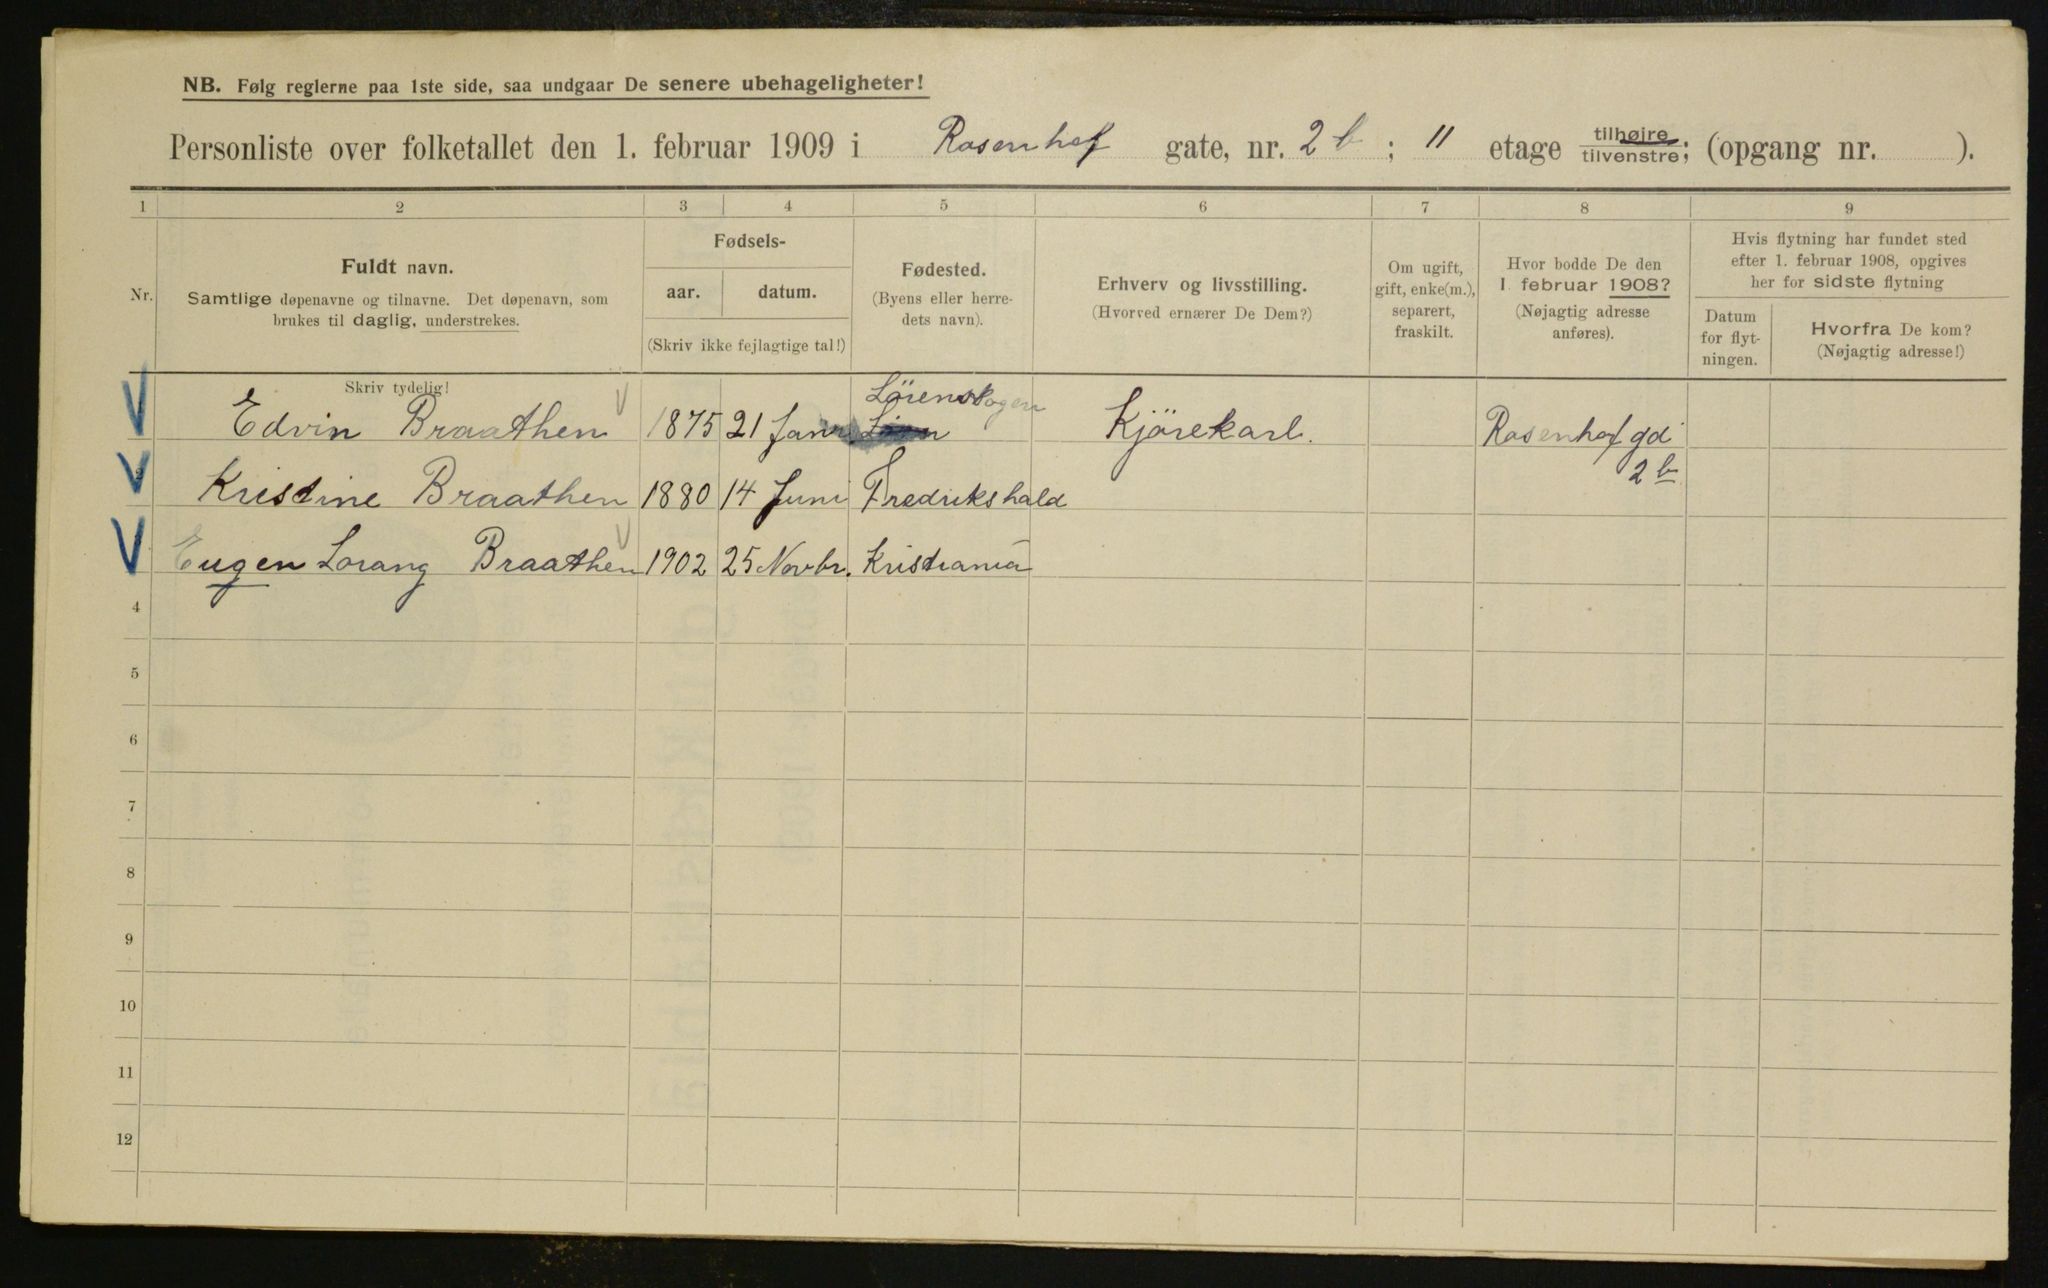 NB. Følg reglerne paa 1ste side, saa undgaar De senere ubehageligheter!
Personliste over folketallet den 1. februar 1909 i Rosenhof gate, nr. 2 b; II etage tilhøjre/tilvenstre; (opgang nr. ).
1 2 3 4 5 6 7 8 9
Nr.
Fuldt navn.
Samtlige døpenavne og tilnavne. Det døpenavn, som
brukes til daglig, understrekes.
Skriv tydelig!
Fødsels-
aar. datum.
(Skriv ikke fejlagtige tal!)
Fødested.
(Byens eller herre-
dets navn).
Erhverv og livsstilling.
(Hvorved ernærer De Dem?)
Om ugift,
gift, enke(m.),
separert,
fraskilt.
Hvor bodde De den
1. februar 1908?
(Nøjagtig adresse
anføres).
Hvis flytning har fundet sted
efter 1. februar 1908, opgives
her for sidste flytning
Datum
for flyt-
ningen.
Hvorfra De kom?
(Nøjagtig adresse!)
Lörenskogen
Edvin Braathen 1875 21 Janr. Kjörekarl. Rosenhof gd
2 b
Kristine Braathen 1880 14 Juni Fredrikshald
Eugen Lorang Braathen 1902 25 Novbr. Kristiania
4
5
6
7
8
9
10
11
12